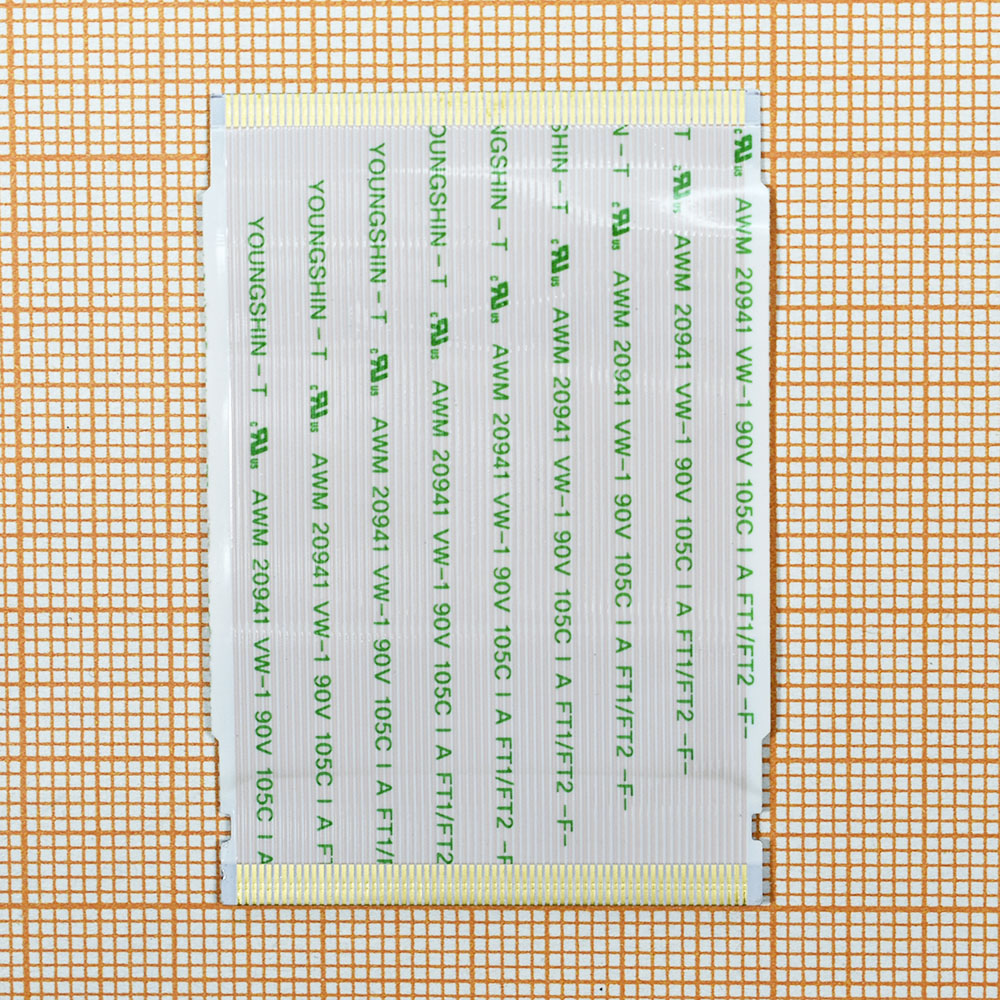 c RU us AWM 20941 VW-1 90V 105C I A FT1/FT2 -F-
T c RU us AWM 20941 VW-1 90V 105C I A FT1/FT2 -F-
N - T c RU us AWM 20941 VW-1 90V 105C I A FT1/FT2 -F-
SHIN - T c RU us AWM 20941 VW-1 90V 105C I A FT1/FT2 -F-
NGSHIN - T c RU us AWM 20941 VW-1 90V 105C I A FT1/FT2 -F
OUNGSHIN - T c RU us AWM 20941 VW-1 90V 105C I A FT1/FT2
YOUNGSHIN - T c RU us AWM 20941 VW-1 90V 105C I A FT1/F
YOUNGSHIN - T c RU us AWM 20941 VW-1 90V 105C I A FT
YOUNGSHIN - T c RU us AWM 20941 VW-1 90V 105C I A